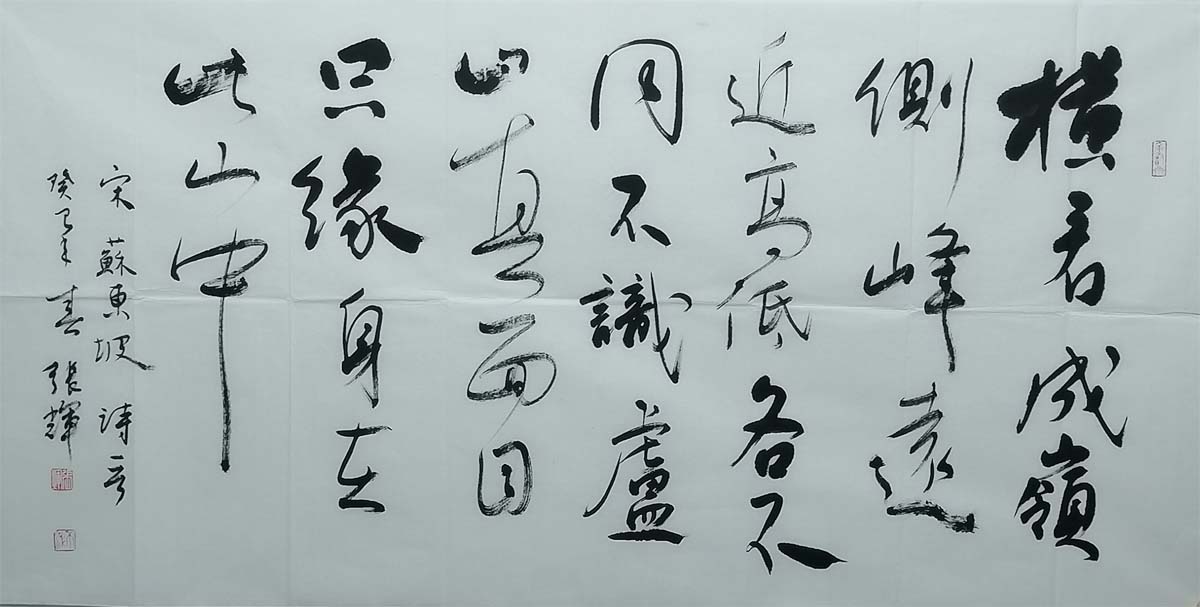 横看成嶺
側峰遠
近高低各不
同不識盧
山真面目
只緣身在
此山中
宋蘇東坡詩
癸巳年春張輝